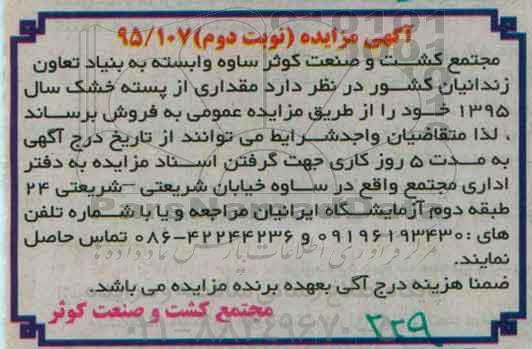 آگهی مزایده (نوبت دوم) ۹۵/۱۰۷
مجتمع کشت و صنعت کوثر ساوه وابسته به بنیاد تعاون
زندانیان کشور در نظر دارد مقداری از پسته خشک سال
۱۳۹۵ خود را از طریق مزایده عمومی به فروش برساند
، لذا متقاضیان واجدشرایط می توانند از تاریخ درج آگهی
به مدت ۵ روز کاری جهت گرفتن اسناد مزایده به دفتر
اداری مجتمع واقع در ساوه خیابان شریعتی –شریعتی ۲۴
طبقه دوم آزمایشگاه ایرانیان مراجعه و یا با شماره تلفن
های :۰۹۱۹۶۱۹۳۴۳۰ و ۴۲۲۴۴۲۳۶-۰۸۶ تماس حاصل
نمایند.
ضمنا هزینه درج آگی بعهده برنده مزایده می باشد.
مجتمع کشت و صنعت کوثر
۲۲۹